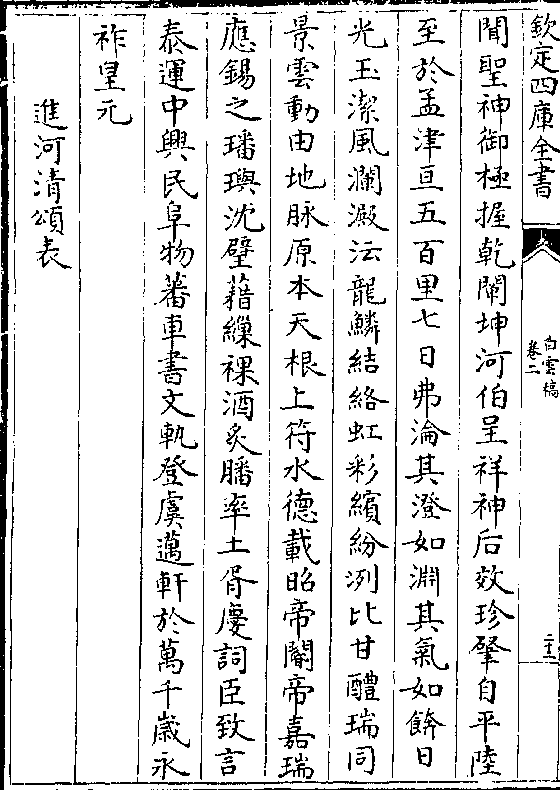 欽定四庫全書
白雲稿
卷二
二十二
聞聖神御極握乾闡坤河伯呈祥神后效珍肇自平陸
至於孟津亘五百里七日弗淪其澄如淵其氣如餴日
光玉潔風瀾澱沄龍鱗結絡虹彩繽紛冽比甘醴瑞同
景雲動由地脉原本天根上符水德載昭帝閽帝嘉瑞
應錫之璠璵沈璧藉繅祼酒炙膰率土胥慶詞臣致言
泰運中興民阜物蕃車書文軌登虞邁軒於萬千歲永
祚皇元
進河清頌表